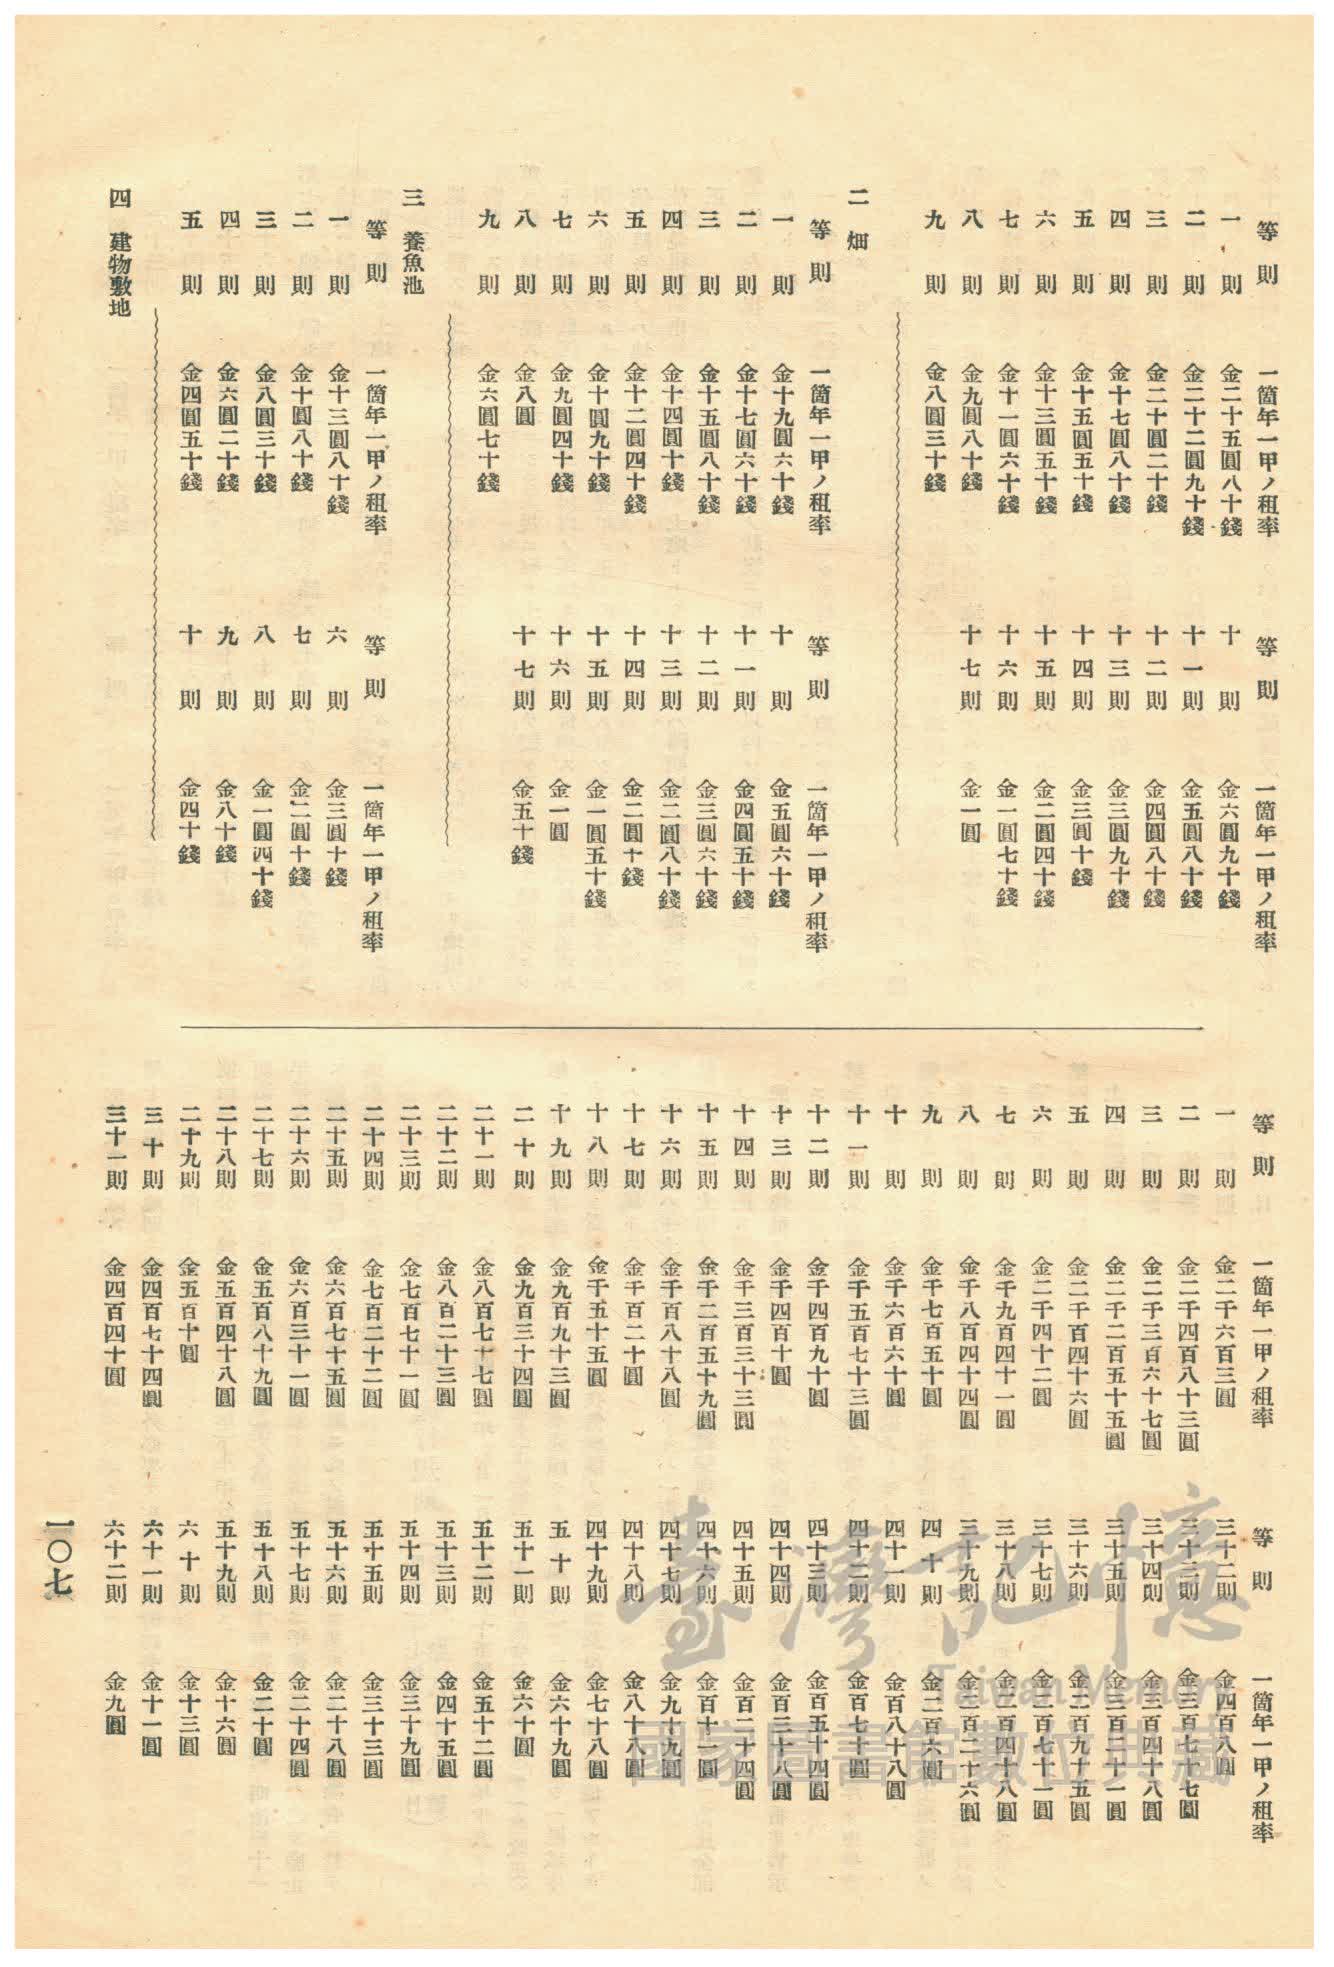 等則　一箇年一甲ノ租率　等則　一箇年一甲ノ租率
一則　金二十五圓八十錢　十則　金六圓九十錢
二則　金二十二圓九十錢　十一則　金五圓八十錢
三則　金二十圓二十錢　十二則　金四圓八十錢
四則　金十七圓八十錢　十三則　金三圓九十錢
五則　金十五圓五十錢　十四則　金三圓十錢
六則　金十三圓五十錢　十五則　金二圓四十錢
七則　金十一圓六十錢　十六則　金一圓七十錢
八則　金九圓八十錢　十七則　金一圓
九則　金八圓三十錢
二　畑
等則　一箇年一甲ノ租率　等則　一箇年一甲ノ租率
一則　金十九圓六十錢　十則　金五圓六十錢
二則　金十七圓六十錢　十一則　金四圓五十錢
三則　金十五圓八十錢　十二則　金三圓六十錢
四則　金十四圓十錢　十三則　金二圓八十錢
五則　金十二圓四十錢　十四則　金二圓十錢
六則　金十圓九十錢　十五則　金一圓五十錢
七則　金九圓四十錢　十六則　金一圓
八則　金八圓　十七則　金五十錢
九則　金六圓七十錢
三　養魚池
等則　一箇年一甲ノ租率　等則　一箇年一甲ノ租率
一則　金十三圓八十錢　六則　金三圓十錢
二則　金十圓八十錢　七則　金二圓十錢
三則　金八圓三十錢　八則　金一圓四十錢
四則　金六圓二十錢　九則　金八十錢
五則　金四圓五十錢　十則　金四十錢
四　建物敷地
等則　一箇年一甲ノ租率　等則　一箇年一甲ノ租率
一則　金二千六百三圓　三十二則　金四百八圓
二則　金二千四百八十三圓　三十三則　金三百七十七圓
三則　金二千三百六十七圓　三十四則　金三百四十八圓
四則　金二千二百五十五圓　三十五則　金三百二十一圓
五則　金二千百四十六圓　三十六則　金二百九十五圓
六則　金二千四十二圓　三十七則　金二百七十一圓
七則　金千九百四十一圓　三十八則　金二百四十八圓
八則　金千八百四十四圓　三十九則　金二百二十六圓
九則　金千七百五十圓　四十則　金二百六圓
十則　金千六百六十圓　四十一則　金百八十八圓
十一則　金千五百七十三圓　四十二則　金百七十圓
十二則　金千四百九十圓　四十三則　金百五十四圓
十三則　金千四百十圓　四十四則　金百三十八圓
十四則　金千三百三十三圓　四十五則　金百二十四圓
十五則　金千二百五十九圓　四十六則　金百十一圓
十六則　金千百八十八圓　四十七則　金九十九圓
十七則　金千百二十圓　四十八則　金八十八圓
十八則　金千五十五圓　四十九則　金七十八圓
十九則　金九百九十三圓　五十則　金六十九圓
二十則　金九百三十四圓　五十一則　金六十圓
二十一則　金八百七十七圓　五十二則　金五十二圓
二十二則　金八百二十三圓　五十三則　金四十五圓
二十三則　金七百七十一圓　五十四則　金三十九圓
二十四則　金七百二十二圓　五十五則　金三十三圓
二十五則　金六百七十五圓　五十六則　金二十八圓
二十六則　金六百三十一圓　五十七則　金二十四圓
二十七則　金五百八十九圓　五十八則　金二十圓
二十八則　金五百四十八圓　五十九則　金十六圓
二十九則　金五百十圓　六十則　金十三圓
三十則　金四百七十四圓　六十一則　金十一圓
三十一則　金四百四十圓　六十二則　金九圓
一〇七
臺灣記憶
Taiwan Memory
國家圖書館數位典藏